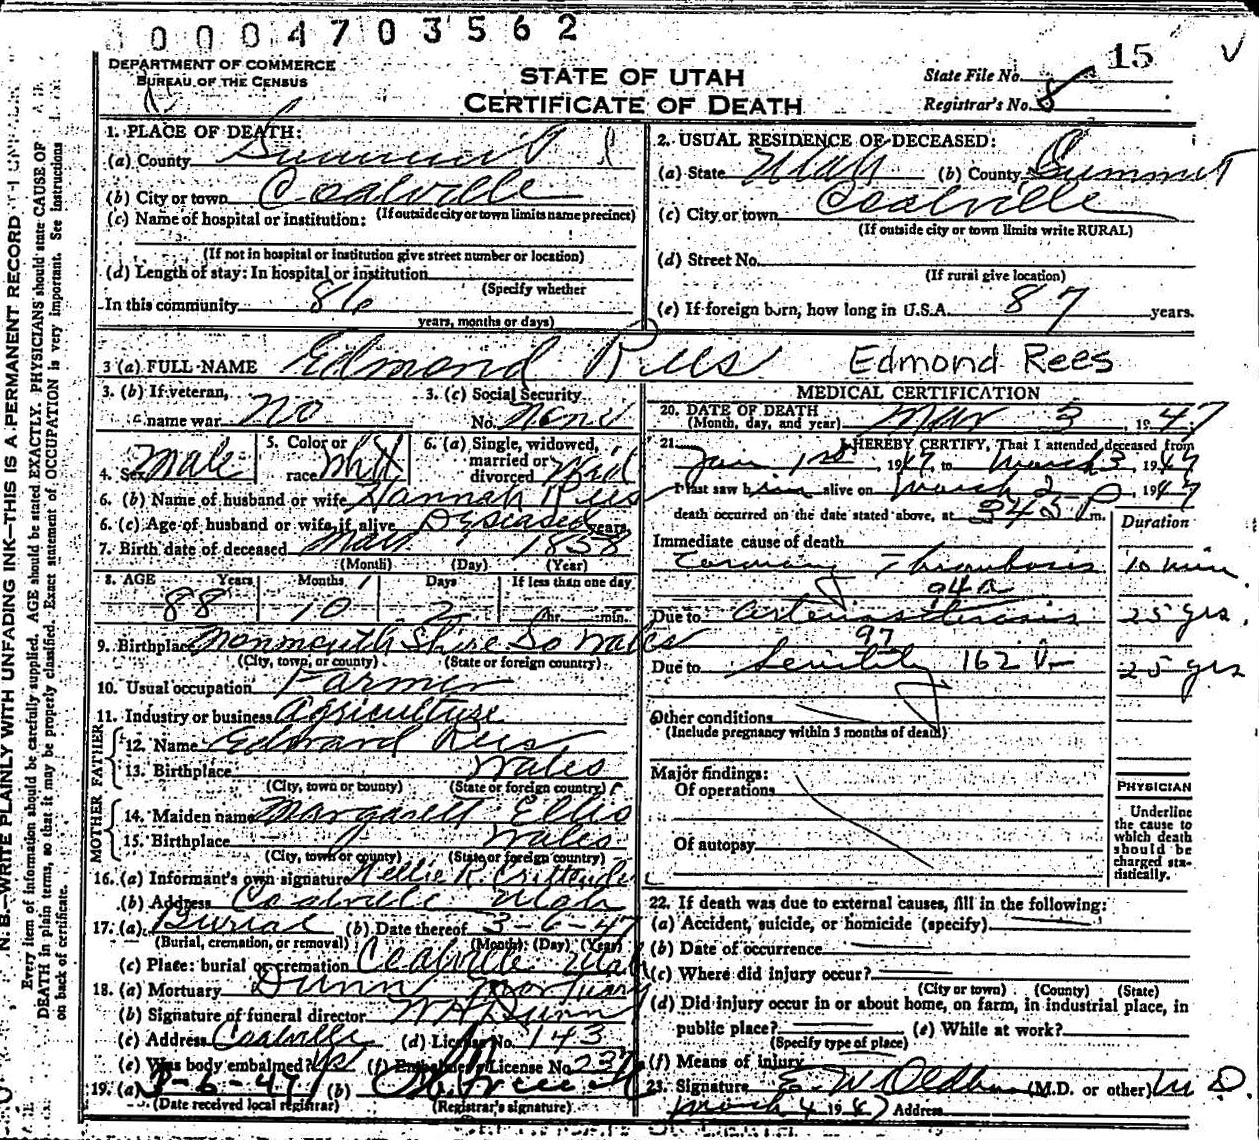 0004703562
15
DEPARTMENT OF COMMERCE
BUREAU OF THE CENSUS
STATE OF UTAH
CERTIFICATE OF DEATH
State File No.
Registrar's No. 8
N. B.—WRITE PLAINLY WITH UNFADING INK—THIS IS A PERMANENT RECORD
Every item of information should be carefully supplied. AGE should be stated EXACTLY. PHYSICIANS should state CAUSE OF
DEATH in plain terms, so that it may be properly classified. Exact statement of OCCUPATION is very important. See instructions
on back of certificate.
1. PLACE OF DEATH:
(a) County Summit
(b) City or town Coalville
(c) Name of hospital or institution: (If outside city or town limits name precinct)
(If not in hospital or institution give street number or location)
(d) Length of stay: In hospital or institution
(Specify whether
In this community 86
years, months or days)
2. USUAL RESIDENCE OF DECEASED:
(a) State Utah (b) County Summit
(c) City or town Coalville
(If outside city or town limits write RURAL)
(d) Street No.
(If rural give location)
(e) If foreign born, how long in U.S.A. 87 years.
3 (a) FULL NAME Edmond Rees Edmond Rees
3. (b) If veteran, 3. (c) Social Security
name war No No. None
4. Sex Male 5. Color or race 6. (a) Single, widowed, married or divorced Wid
6. (b) Name of husband or wife Hannah Rees
6. (c) Age of husband or wife if alive years.
7. Birth date of deceased 1858
(Month) (Day) (Year)
8. AGE Years Months Days If less than one day
88 10 2 hr. min.
9. Birthplace Monmouth Shire So Wales
(City, town, or county) (State or foreign country)
10. Usual occupation Farmer
11. Industry or business Agriculture
FATHER
12. Name Edward Rees
13. Birthplace Wales
(City, town or county) (State or foreign country)
MOTHER
14. Maiden name Margarett Ellis
15. Birthplace Wales
(City, town or county) (State or foreign country)
16. (a) Informant's own signature Nellie R. Crittenden
(b) Address Coalville Utah
17. (a) Burial (b) Date thereof 3-6-47
(Burial, cremation, or removal) (Month) (Day) (Year)
(c) Place: burial or cremation Coalville Utah
18. (a) Mortuary Dunn Mortuary
(b) Signature of funeral director Dunn
(c) Address Coalville (d) License No. 143
(e) Was body embalmed? Yes (f) Embalmer's License No. 237
19. (a) 3-6-47 (b)
(Date received local registrar) (Registrar's signature)
MEDICAL CERTIFICATION
20. DATE OF DEATH
(Month, day, and year) Mar 3, 1947
21. I HEREBY CERTIFY, That I attended deceased from
Jan 1st, 1947, to March 3, 1947
I last saw him alive on March 2, 1947
death occurred on the date stated above, at m.
Duration
Immediate cause of death
Coronary Thrombosis 10 min.
94a
Due to Arteriosclerosis 25 yrs.
97
Due to Senility 162 25 yrs
Other conditions
(Include pregnancy within 3 months of death)
Major findings:
Of operations
Of autopsy
PHYSICIAN
Underline
the cause to
which death
should be
charged sta-
tistically.
22. If death was due to external causes, fill in the following:
(a) Accident, suicide, or homicide (specify)
(b) Date of occurrence
(c) Where did injury occur?
(City or town) (County) (State)
(d) Did injury occur in or about home, on farm, in industrial place, in
public place? (e) While at work?
(Specify type of place)
(f) Means of injury
23. Signature E. W. Oldham (M.D. or other) M D.
March 4 1947 Address